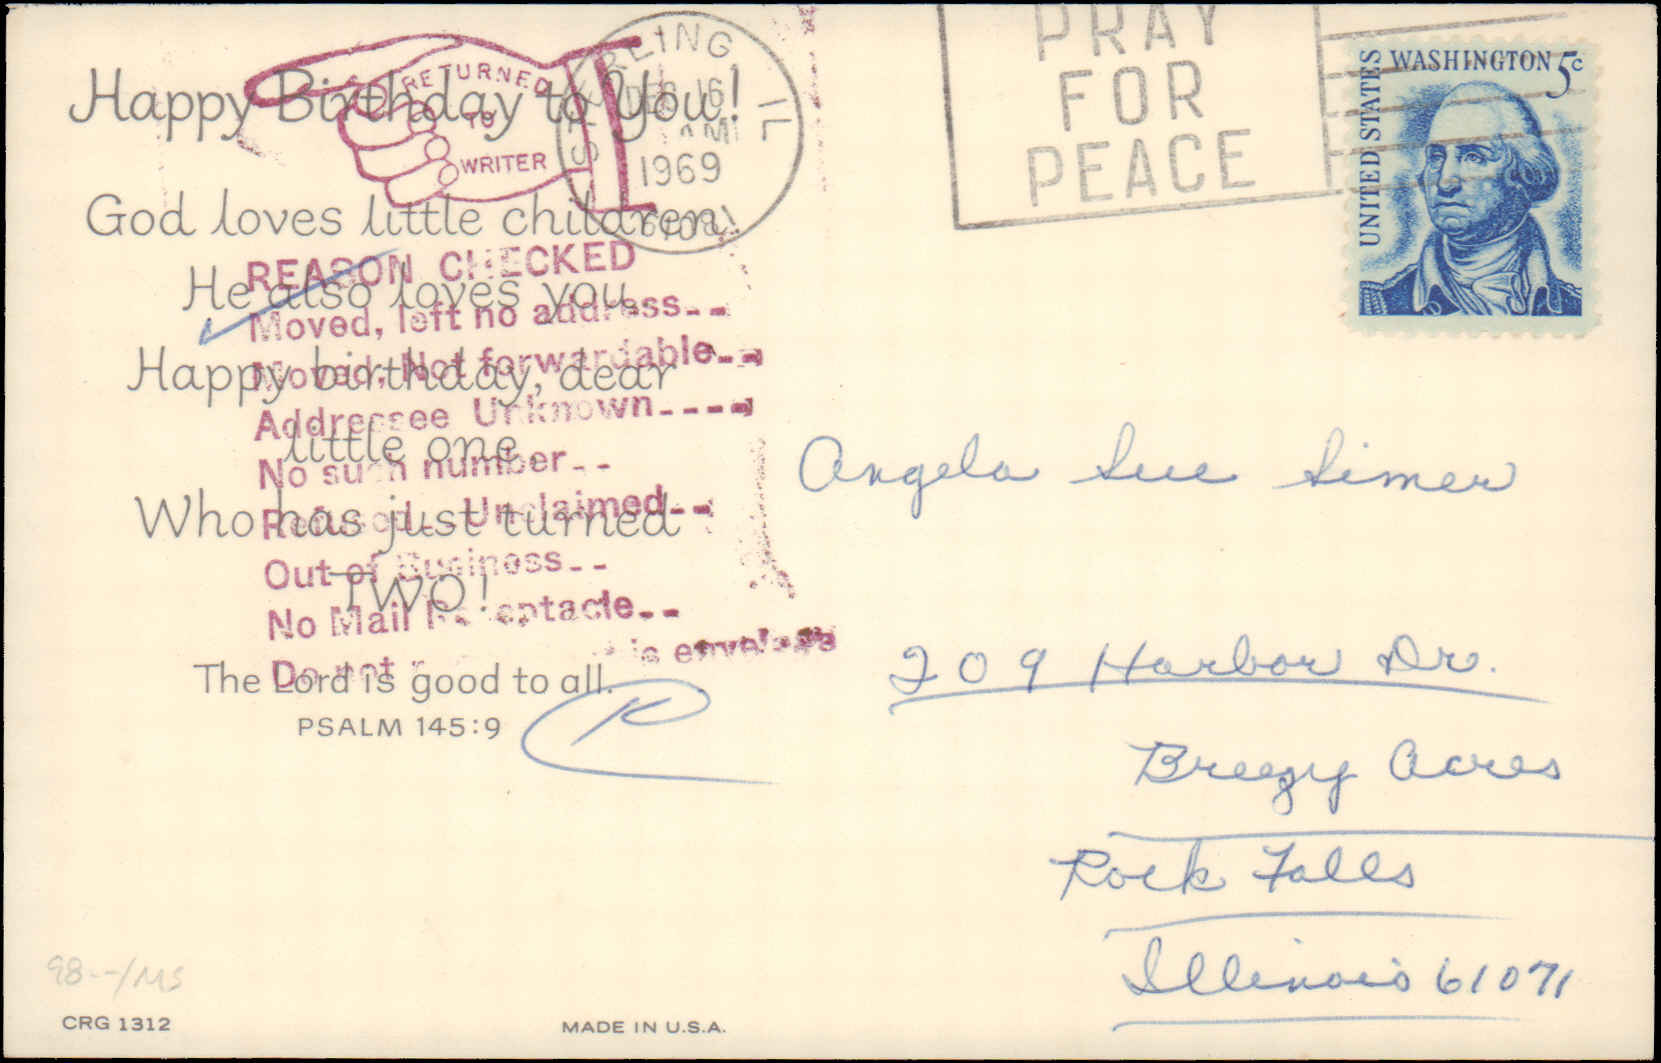 Happy Birthday to You!
God loves little children,
He also loves you.
Happy birthday, dear
little one,
Who has just turned
TWO!
The Lord is good to all.
PSALM 145:9
RETURNED
TO
WRITER
REASON CHECKED
Moved, left no address
Moved, Not forwardable
Addressee Unknown
No such number
Refused Unclaimed
Out of Business
No Mail Receptacle
Do not
STERLING IL
DEC 16
AM
1969
PRAY
FOR
PEACE
UNITED STATES
WASHINGTON 5c
Angela Sue Simer
209 Harbor Dr.
Breezy Acres
Rock Falls
Illinois 61071
98--/MS
CRG 1312
MADE IN U.S.A.